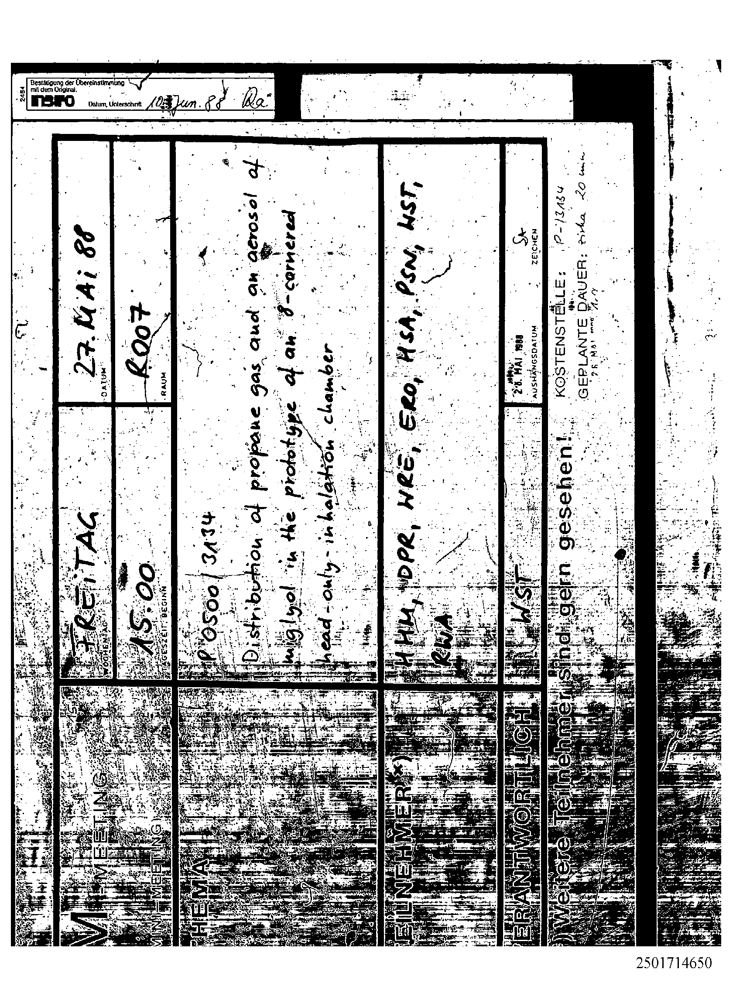 2484
Bestätigung der Übereinstimmung
mit dem Original.
INBIFO Datum, Unterschrift 10. Jun. 88
MEETING
MINI MEETING
FREiTAG
WOCHENTAG
27. MAi 88
DATUM
15.00
UHRZEIT BEGINN
R007
RAUM
THEMA
P 0500 / 3134
Distribution of propane gas and an aerosol of
miglyol in the prototype of an 8-cornered
head-only-inhalation chamber
TEILNEHMER(*)
HHM, DPR, WRE, ERO, HSA, PSN, WST,
RWA
VERANTWORTLICH
WST
26. MAI 1988
AUSHANGSDATUM
ZEICHEN
*) Weitere Teilnehmer sind gern gesehen!
KOSTENSTELLE: P-13134
GEPLANTE DAUER: zirka 20 min
2501714650